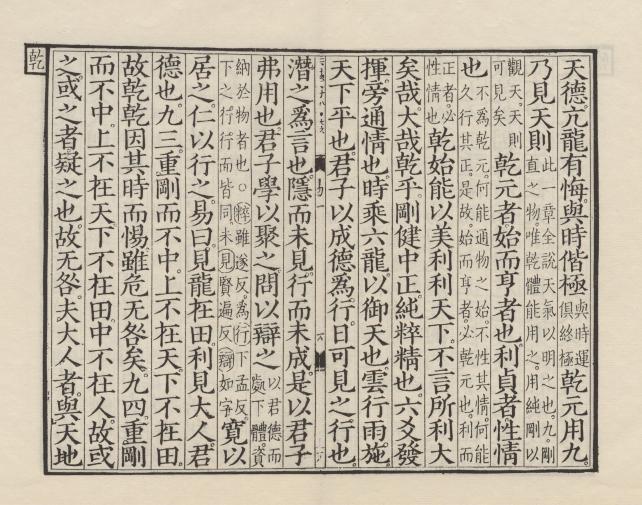 天德亢龍有悔與時偕極與時運俱終極乾元用九
乃見天則此一章全說天氣以明之也九剛直之物唯乾體能用之用純剛以
觀天天則可見矣乾元者始而亨者也利貞者性情
也不為乾元何能通物之始不性其情何能久行其正是故始而亨者必乾元也利而
正者必性情也乾始能以美利利天下不言所利大
矣哉大哉乾乎剛健中正純粹精也六爻發
揮旁通情也時乘六龍以御天也雲行雨施
天下平也君子以成德為行日可見之行也
易
潛之為言也隱而未見行而未成是以君子
弗用也君子學以聚之問以辯之以君德而處下體資
納於物者也○粹雖遂反為行下孟反下之行行而皆同未見賢遍反辯如字寬以
居之仁以行之易曰見龍在田利見大人君
德也九三重剛而不中上不在天下不在田
故乾乾因其時而惕雖危无咎矣九四重剛
而不中上不在天下不在田中不在人故或
之或之者疑之也故无咎夫大人者與天地
乾